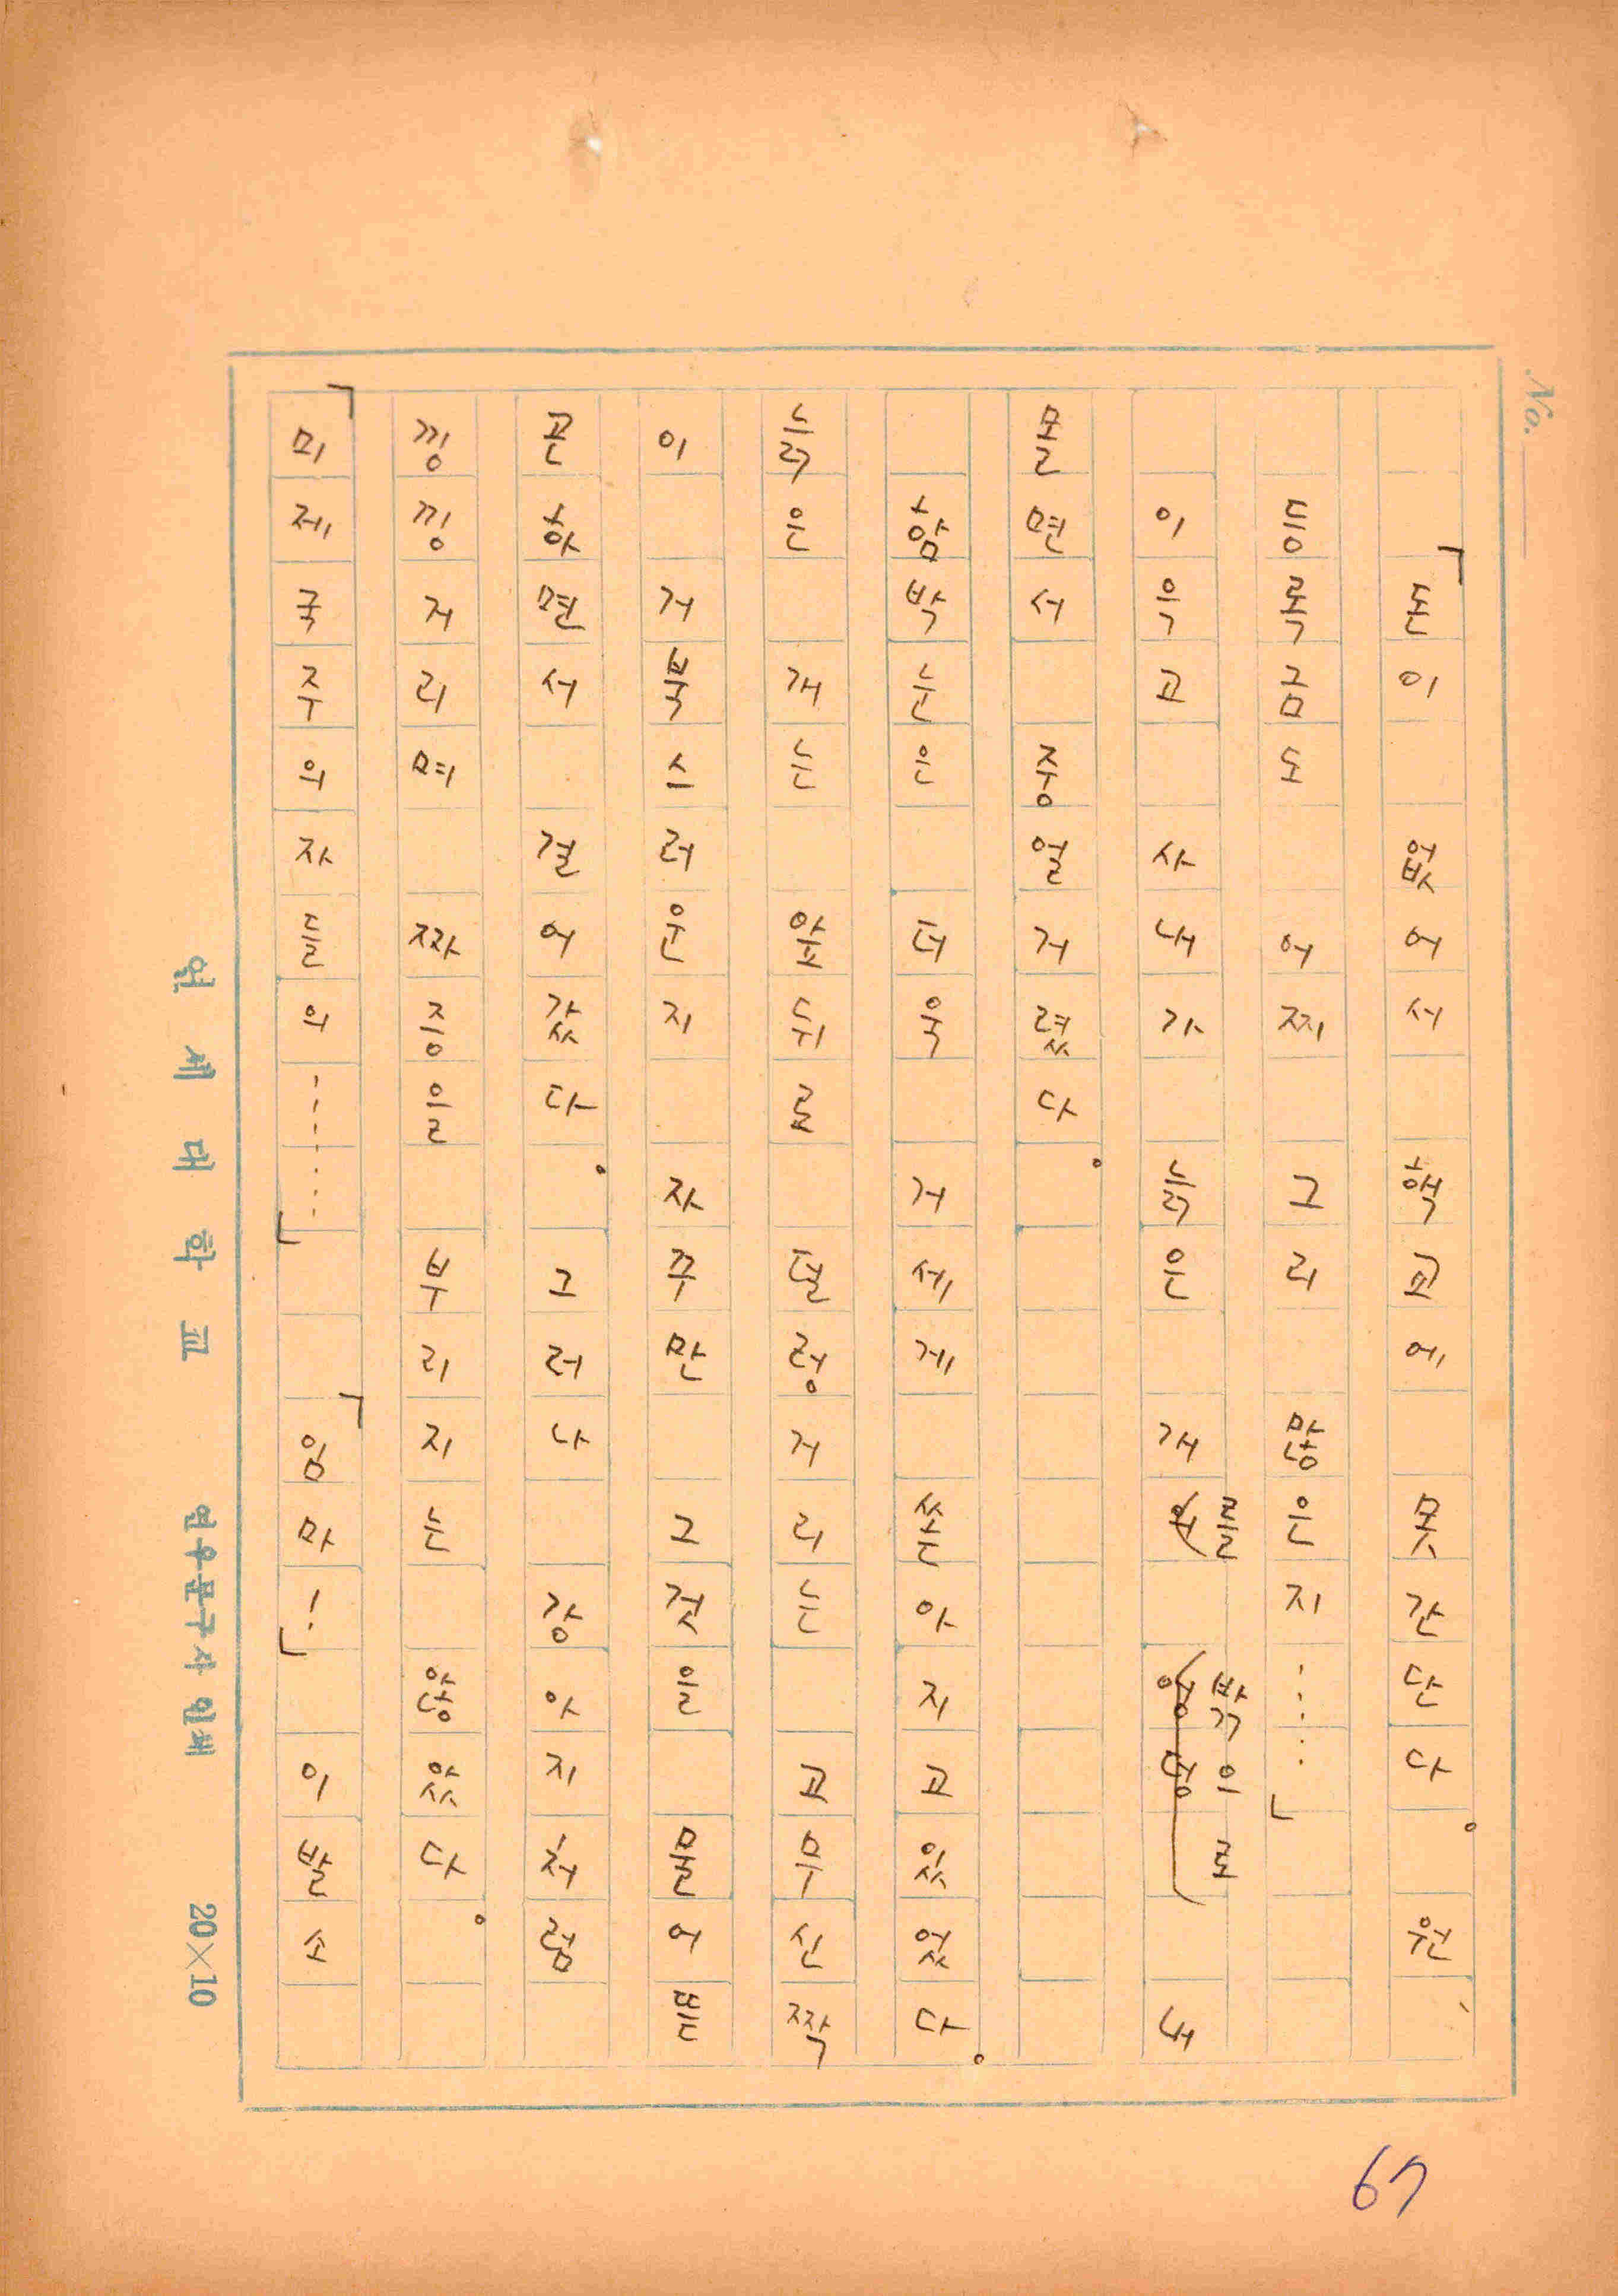 No.
「돈이 없어서 핵교에 못 간단다. 원,
등록금도 어찌 그리 많은지……」
이윽고 사내가 늙은 개를 밖으로 내
몰면서 중얼거렸다.
함박눈은 더욱 거세게 쏟아지고 있었다.
늙은 개는 앞뒤로 덜렁거리는 고무신짝
이 거북스러운지 자꾸만 그것을 물어뜯
곤 하면서 걸어갔다. 그러나 강아지처럼
낑낑거리며 짜증을 부리지는 않았다.
「미제국주의자들의……」 「엄마!」 이발소
연세대학교 연우문구사인쇄 20×10
67